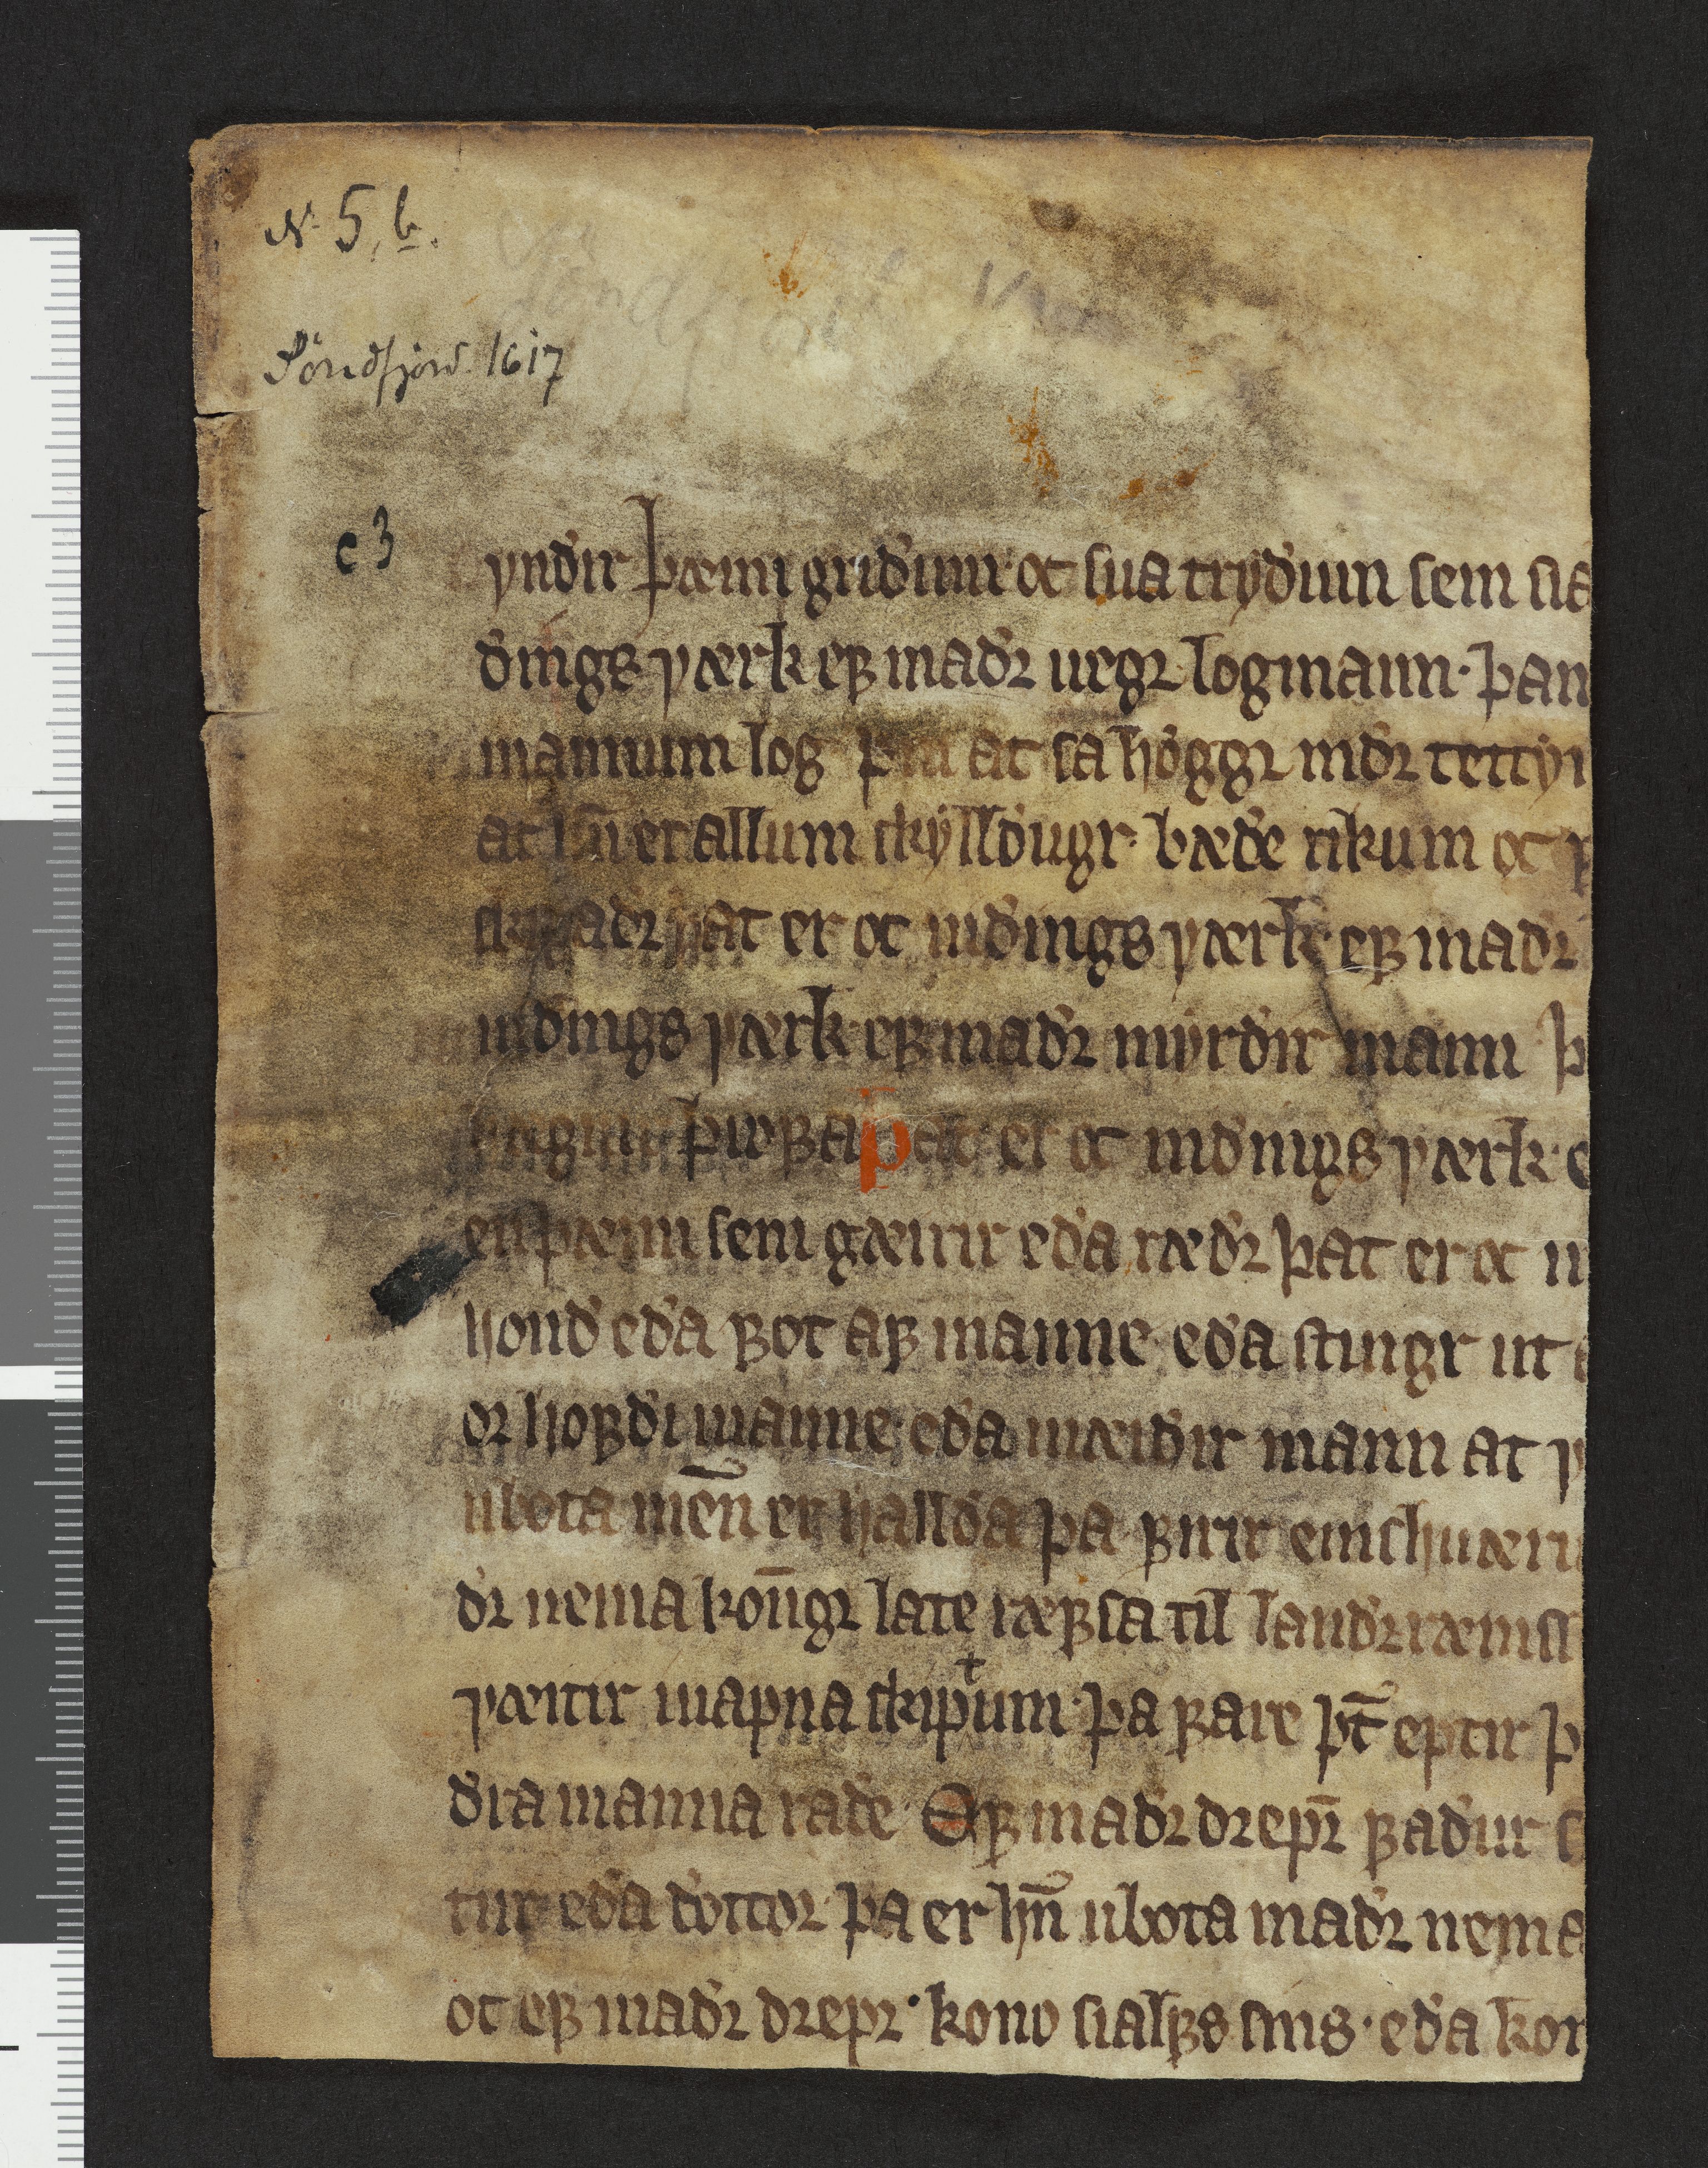 N. 5, b.
Söndfjord. 1617
c 3
yndir þæim gridum oc sua trydum sem sia
dings værk ef madꝛ uegꝛ logmann· þan
mannum log þui at sa hoggꝛ mdꝛ tettyr
at hn̄ er allum skylldugr· bæde rikum oc
þat er oc nidings værk· ef madꝛ
nidings værk· ef madꝛ myrdir mann þ
þat er oc nidings værk· e
en þæim sem gærir eda rædꝛ þat er oc n
hond eda fot af manne eda stingr ut
oꝛ hofdi manne eda mæidir mann at
ubota men̄ er hallda þa firir einshuæri
dꝛ nema kon̄gꝛ late ræfsa til landꝛræniss
væitir uapna skiptum· þa fare þt̄ eptir þ
dra manna rade· Ef madꝛ dꝛepꝛ̄ fadur
tur eda dottoꝛ þa er hn̄ ubota madꝛ nema
oc ef madꝛ dꝛepꝛ· kono sialfs sins· eda kon